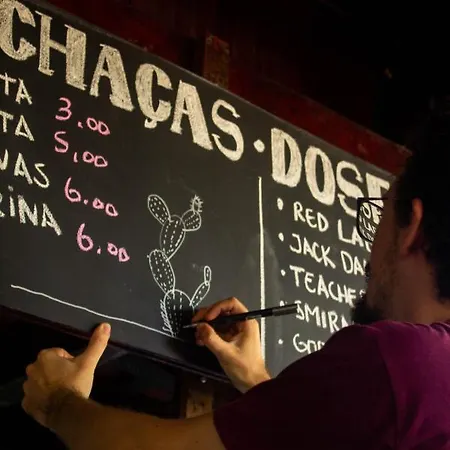 CHAÇAS · DOSE
TA 3.00
TA 5.00
NAS 6.00
RINA 6.00
· RED LA
· JACK DA
· TEACHE
· SMIRN